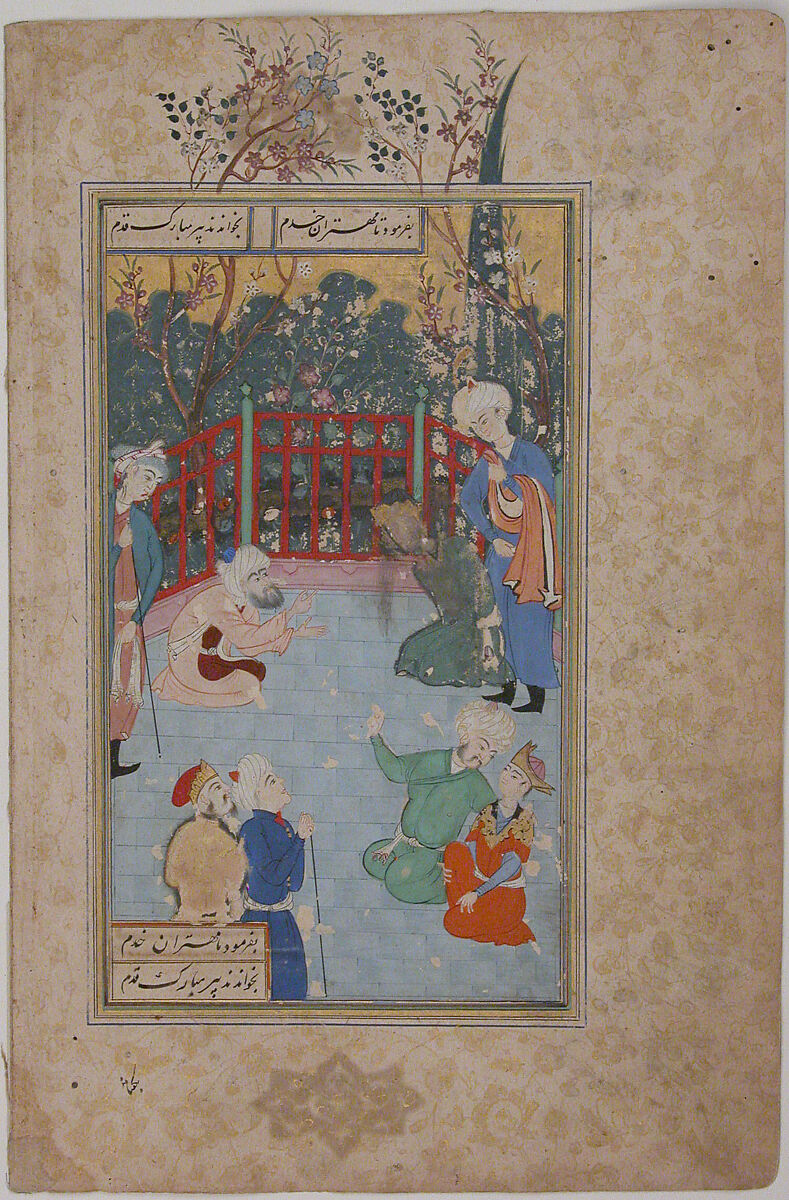 بفرمود تا مهتران خدم
بخواندند پیر مبارک قدم
بفرمود تا مهتران خدم
بخواندند پیر مبارک قدم